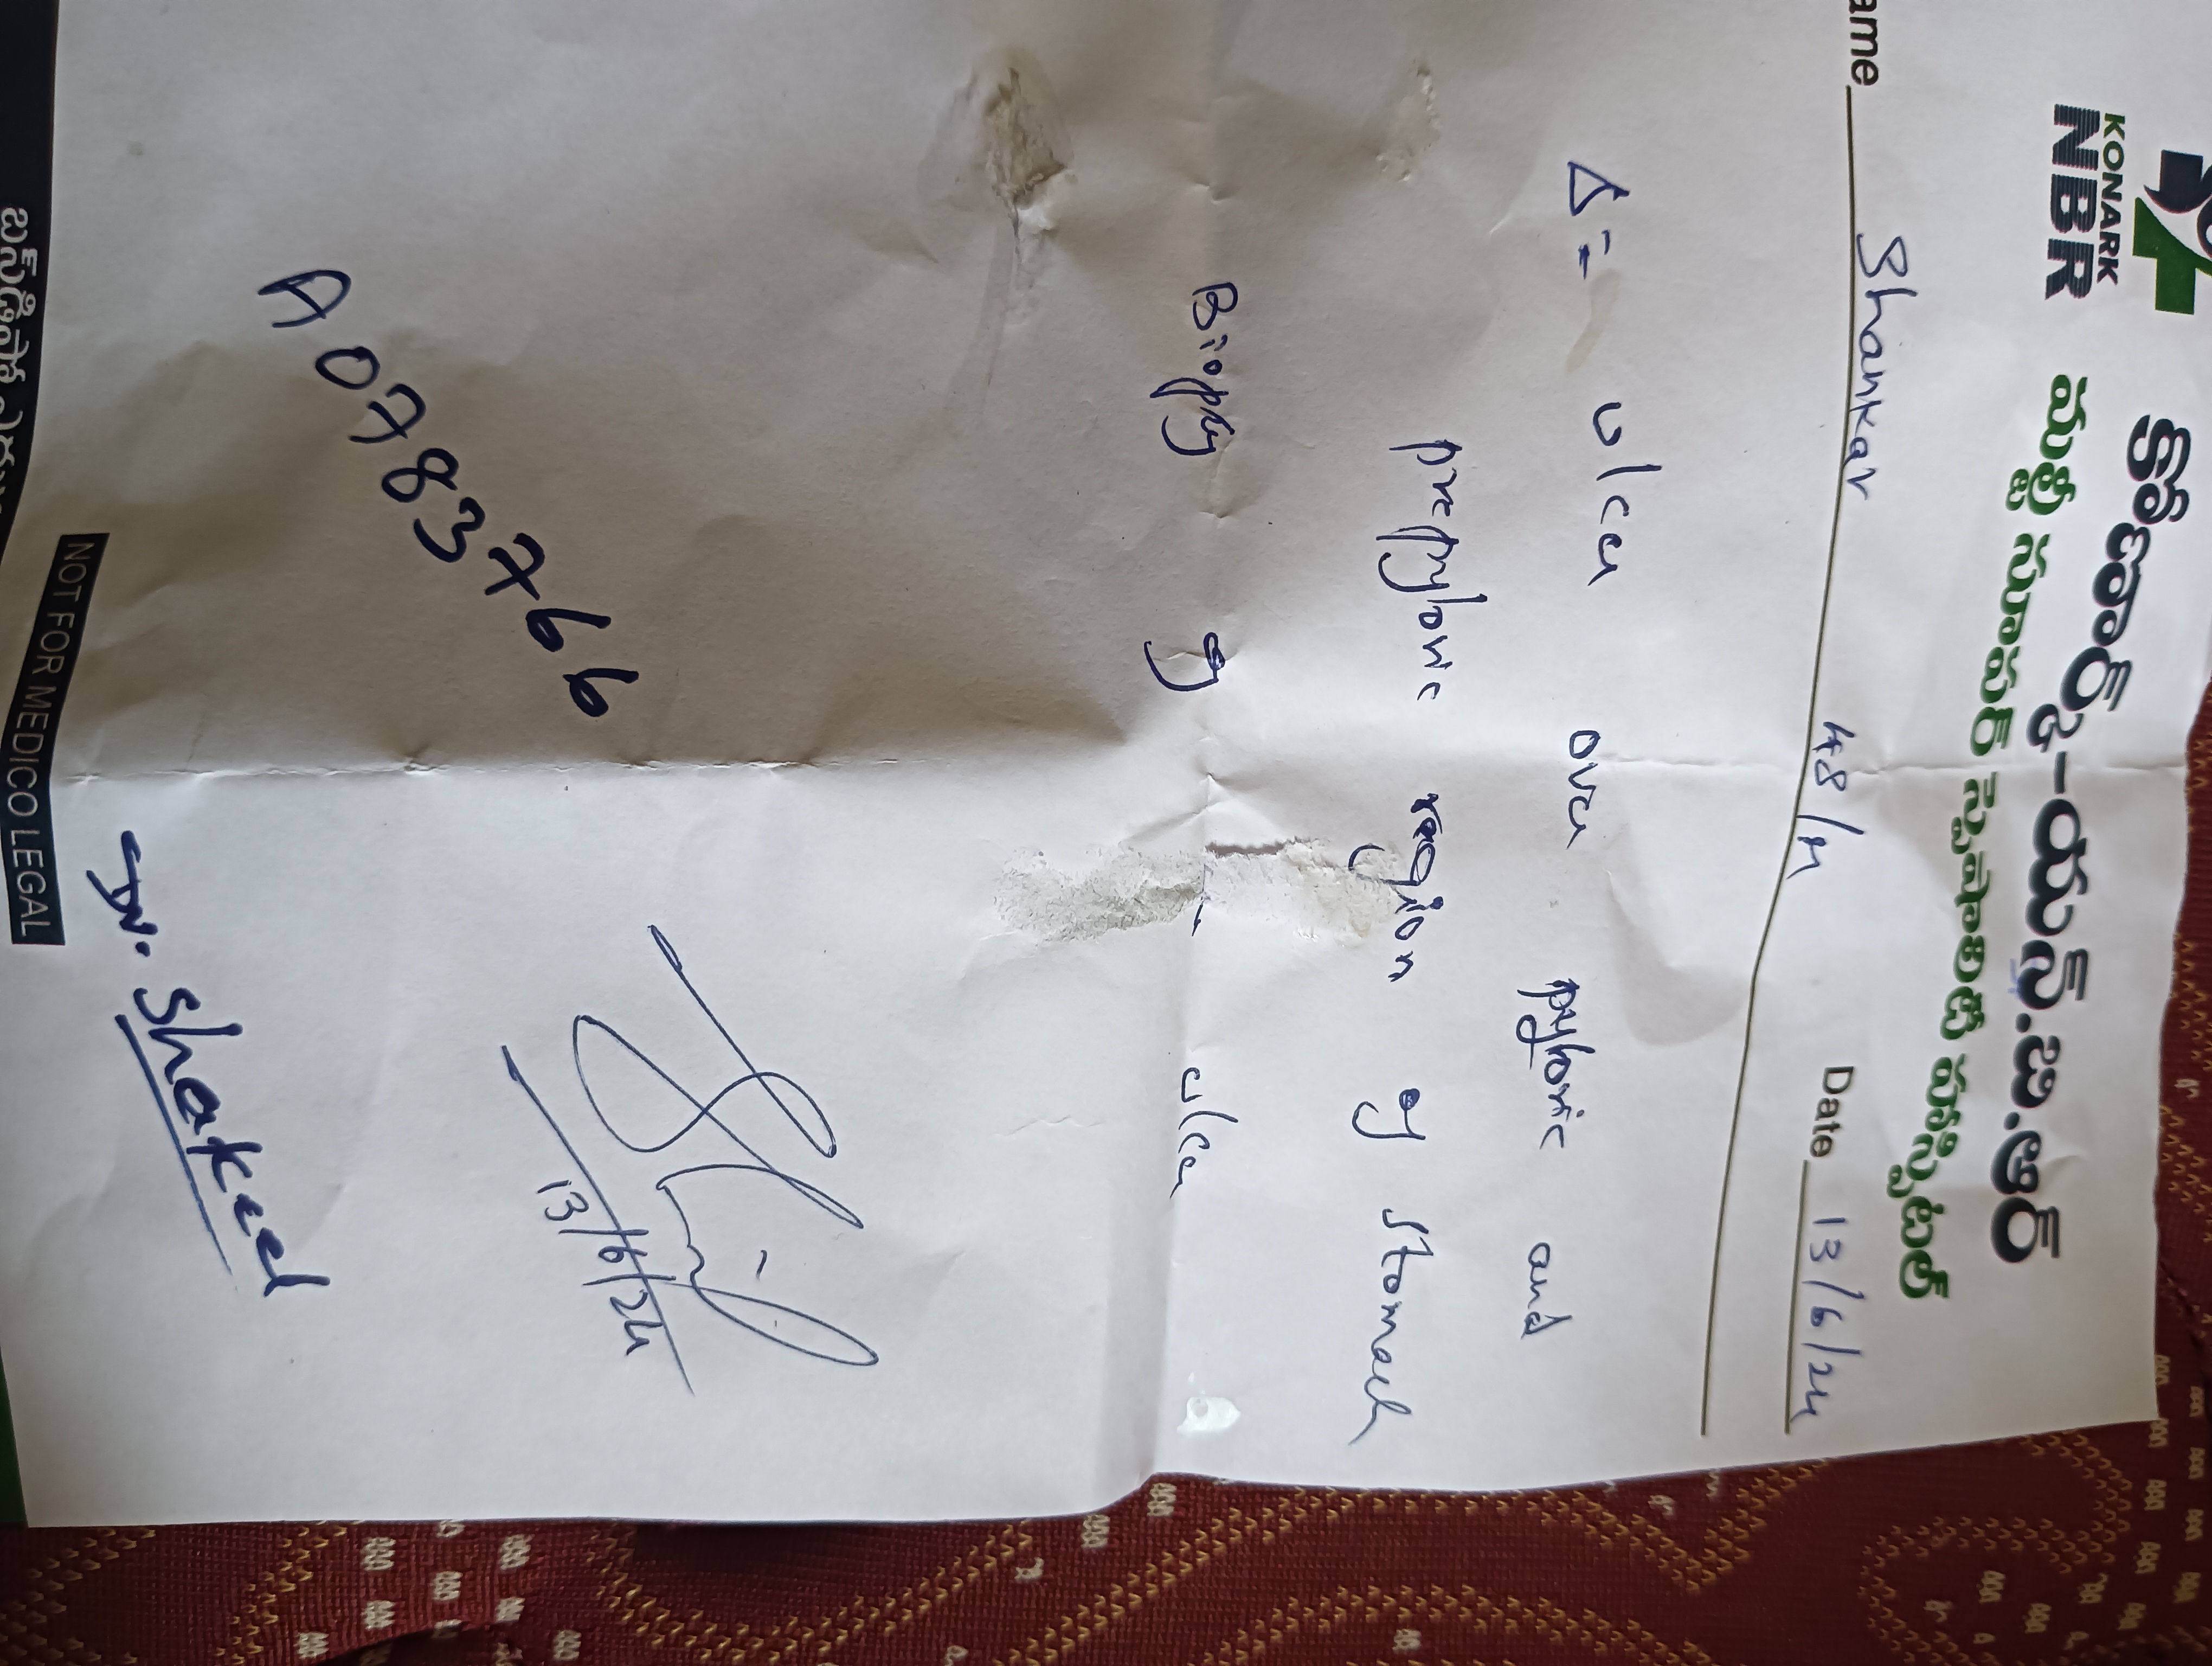 KONARK
NBR
కోణార్క్-యన్.బి.ఆర్
మల్టీ సూపర్ స్పెషాలిటీ హాస్పిటల్
ame Shankar 48/M Date 13/6/24
Δ = ulcer over pyloric and
prepyloric region of stomach
Biopsy of ulcer
13/6/24
A0783766
Dr. Shakeel
NOT FOR MEDICO LEGAL